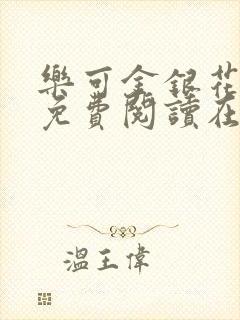 樂可金銀花
免費閱讀在
溫王偉